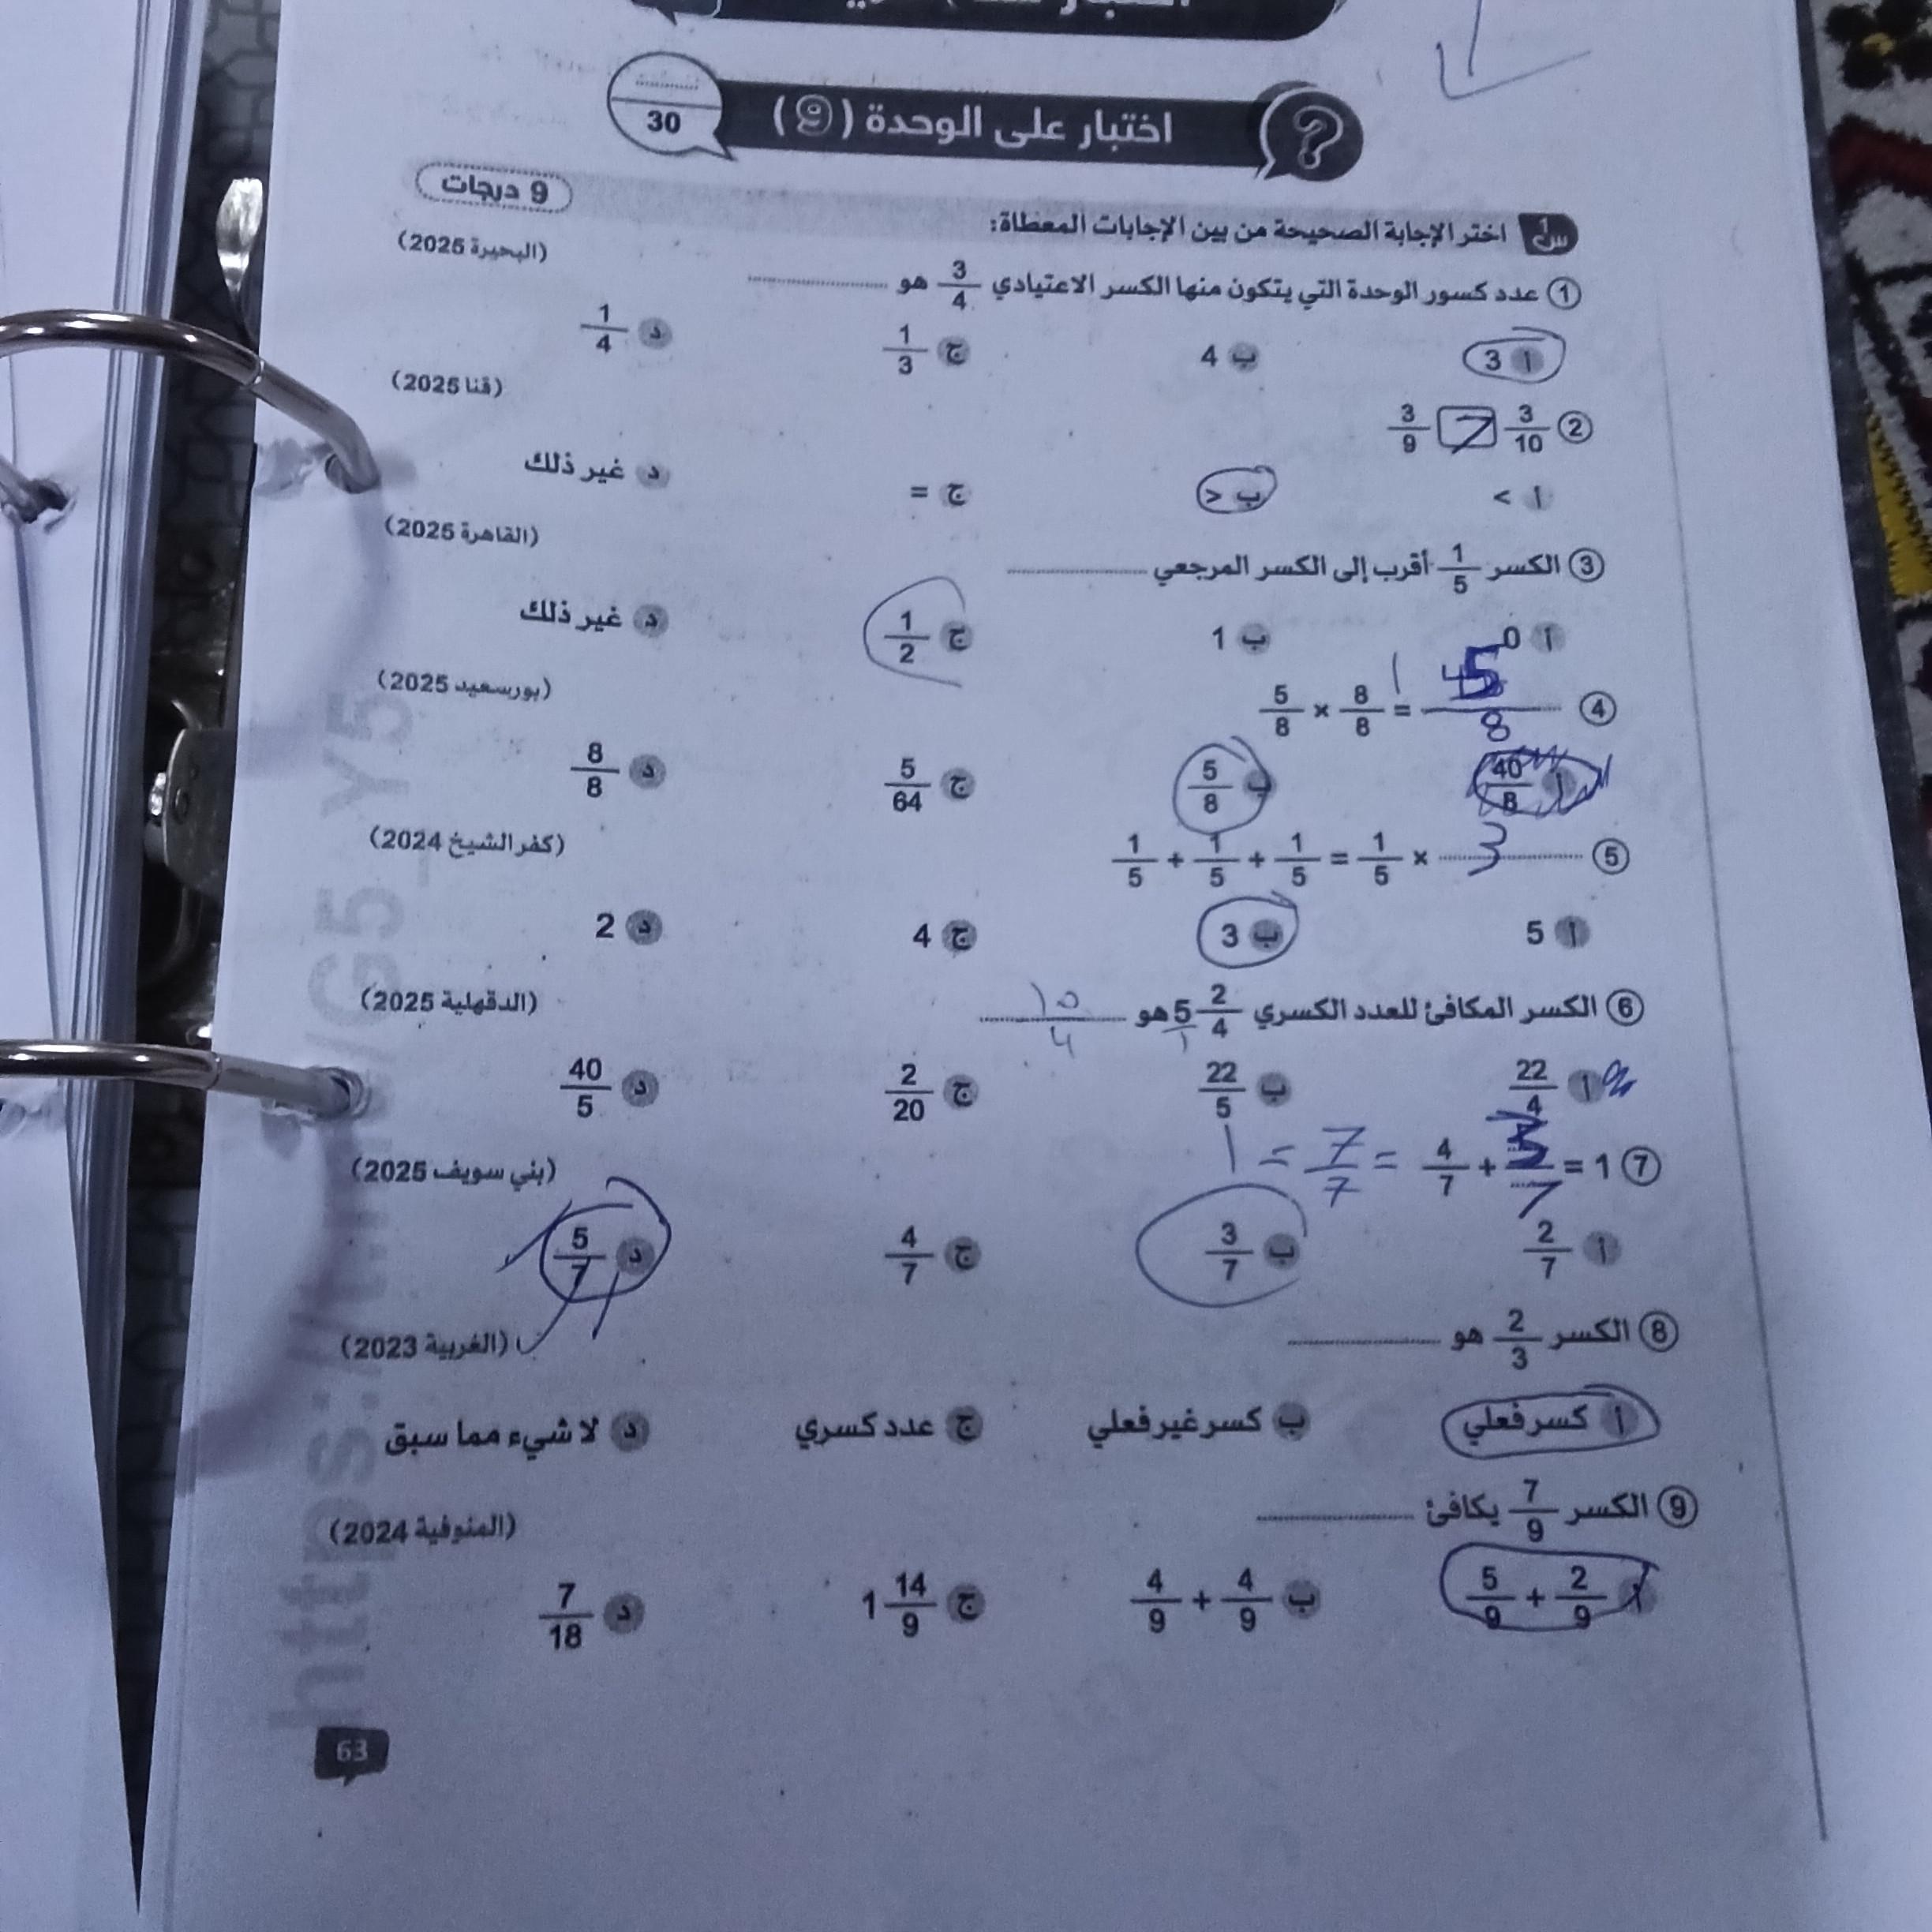 30
اختبار على الوحدة (9)
9 درجات
س1 اختر الإجابة الصحيحة من بين الإجابات المعطاة:
(البحيرة 2025)
① عدد كسور الوحدة التي يتكون منها الكسر الاعتيادي 3/4 هو ............
أ 3 ب 4 ج 1/3 د 1/4
(قنا 2025)
② 3/10 > 3/9
أ > ب < ج = د غير ذلك
(القاهرة 2025)
③ الكسر 1/5 أقرب إلى الكسر المرجعي ............
أ 0 ب 1 ج 1/2 د غير ذلك
(بورسعيد 2025)
④ 5/8 × 8/8 = 5/8
أ 40/8 ب 5/8 ج 5/64 د 8/8
(كفر الشيخ 2024)
⑤ 1/5 + 1/5 + 1/5 = 1/5 × 3
أ 5 ب 3 ج 4 د 2
(الدقهلية 2025)
⑥ الكسر المكافئ للعدد الكسري 5 2/4 هو 10/4
أ 22/4 ب 22/5 ج 2/20 د 40/5
(بني سويف 2025)
⑦ 1 = 7/7 = 4/7 + 3/7 = 1
أ 2/7 ب 3/7 ج 4/7 د 5/7
(الغربية 2023)
⑧ الكسر 2/3 هو ............
أ كسر فعلي ب كسر غير فعلي ج عدد كسري د لا شيء مما سبق
(المنوفية 2024)
⑨ الكسر 7/9 يكافئ ............
أ 5/9 + 2/9 ب 4/9 + 4/9 ج 1 14/9 د 7/18
63